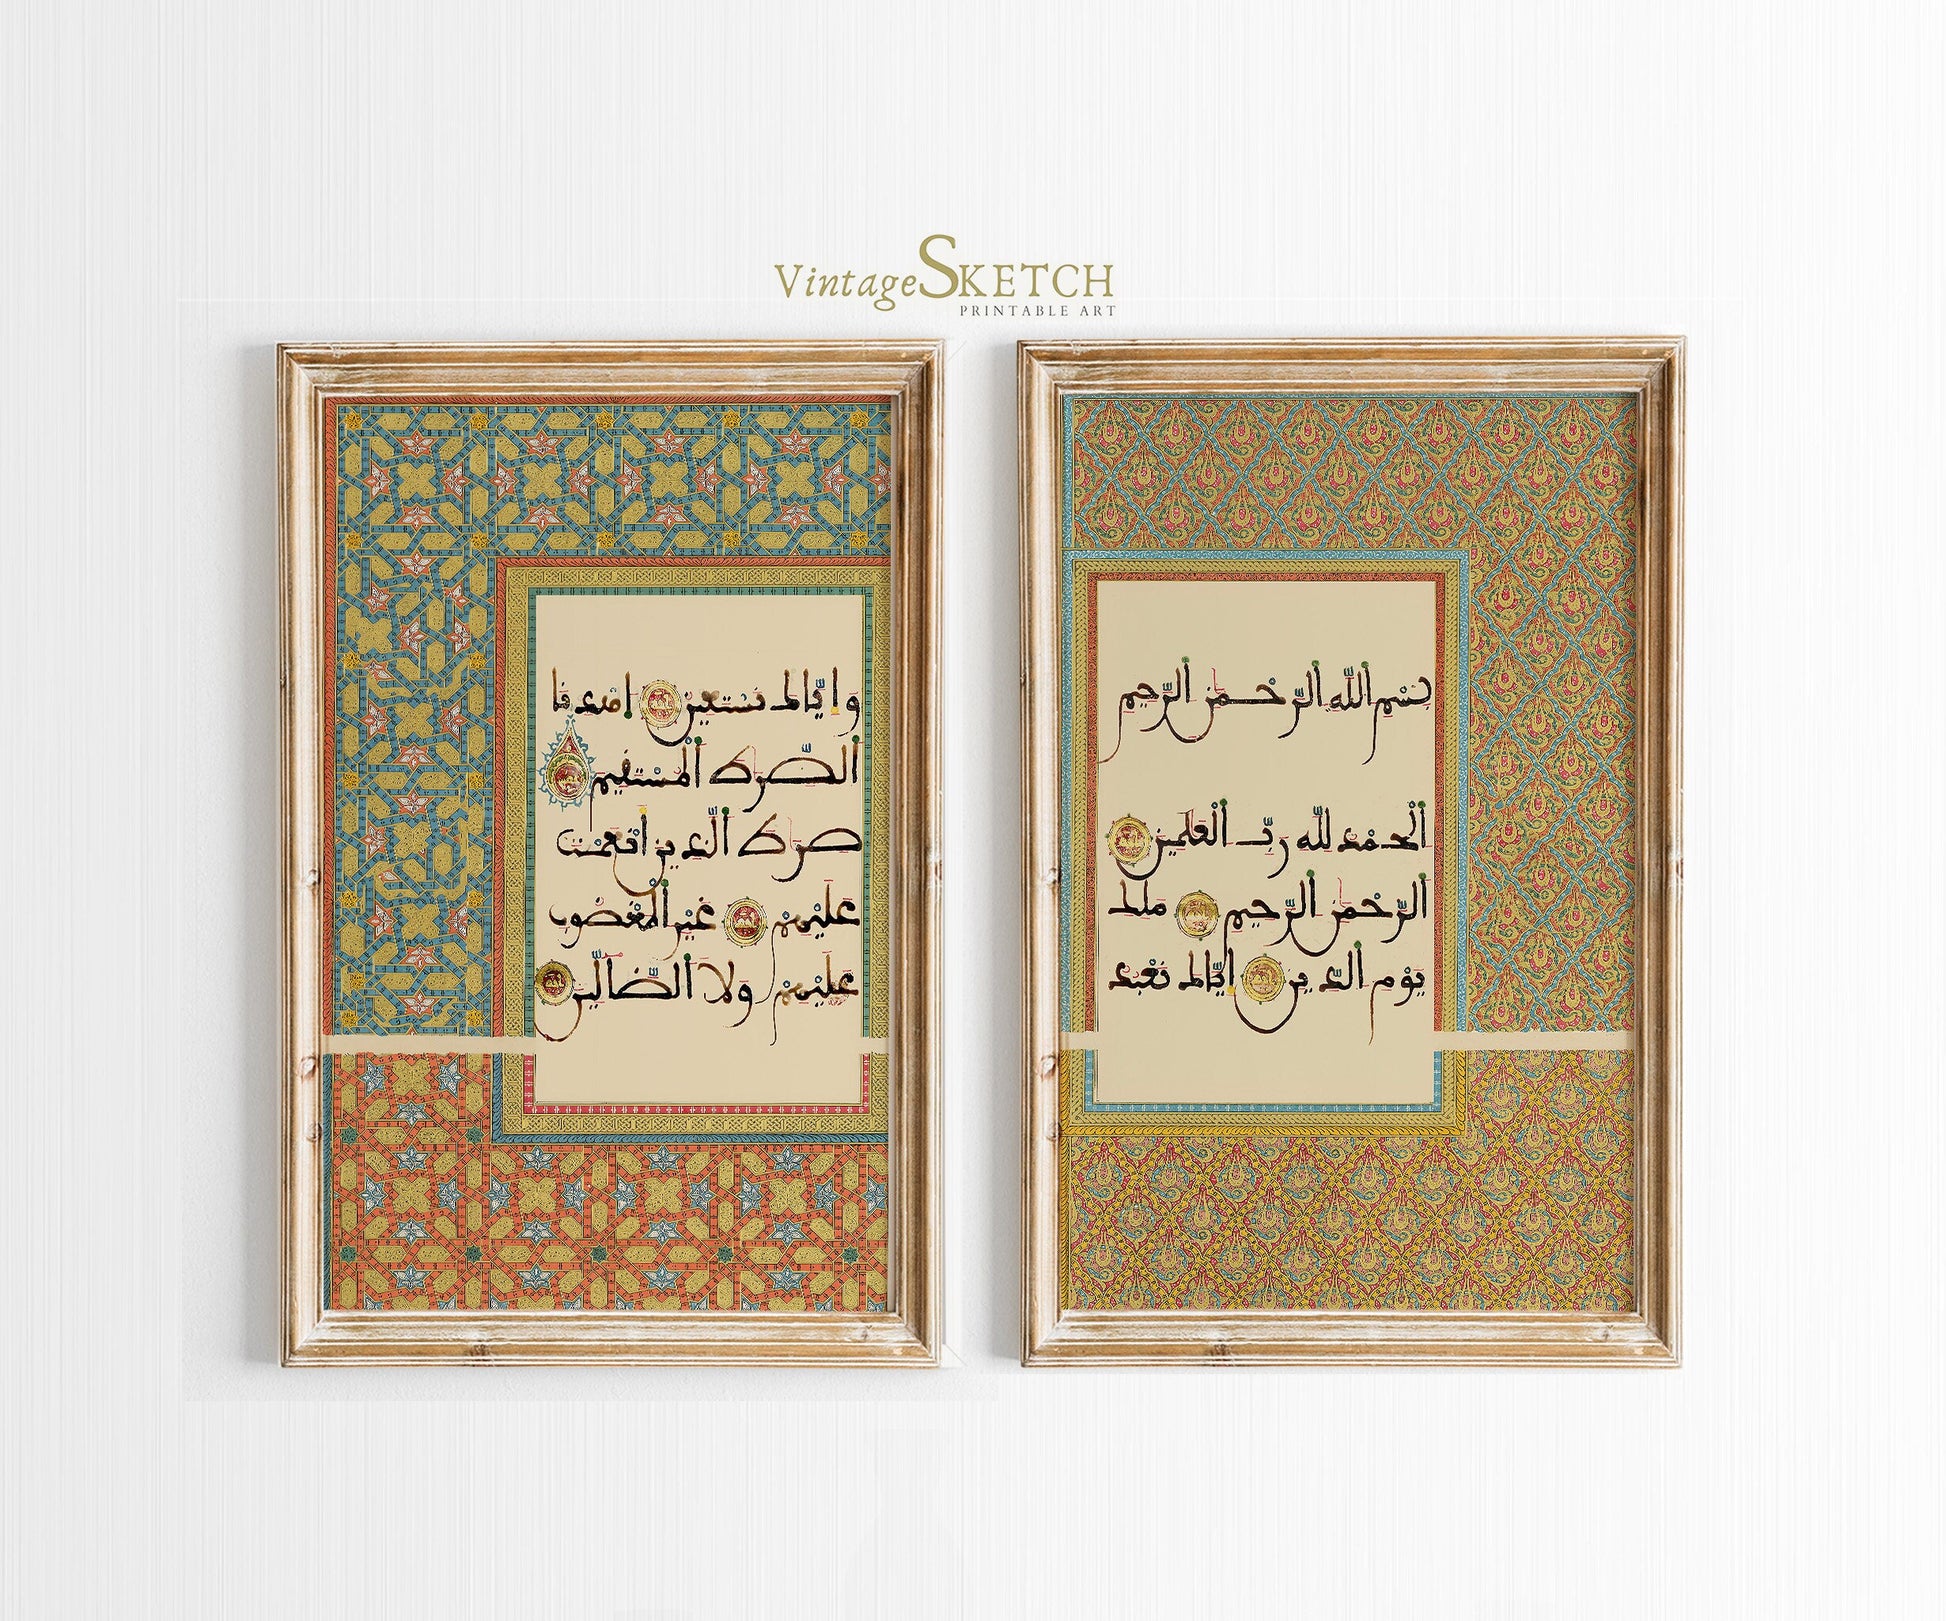 VintageSKETCH
PRINTABLE ART
بسم الله الرحمن الرحيم
الحمد لله رب العلمين
الرحمن الرحيم ملك
يوم الدين اياك نعبد
واياك نستعين اهدنا
الصرط المستقيم
صرط الذين انعمت
عليهم غير المغضوب
عليهم ولا الضالين